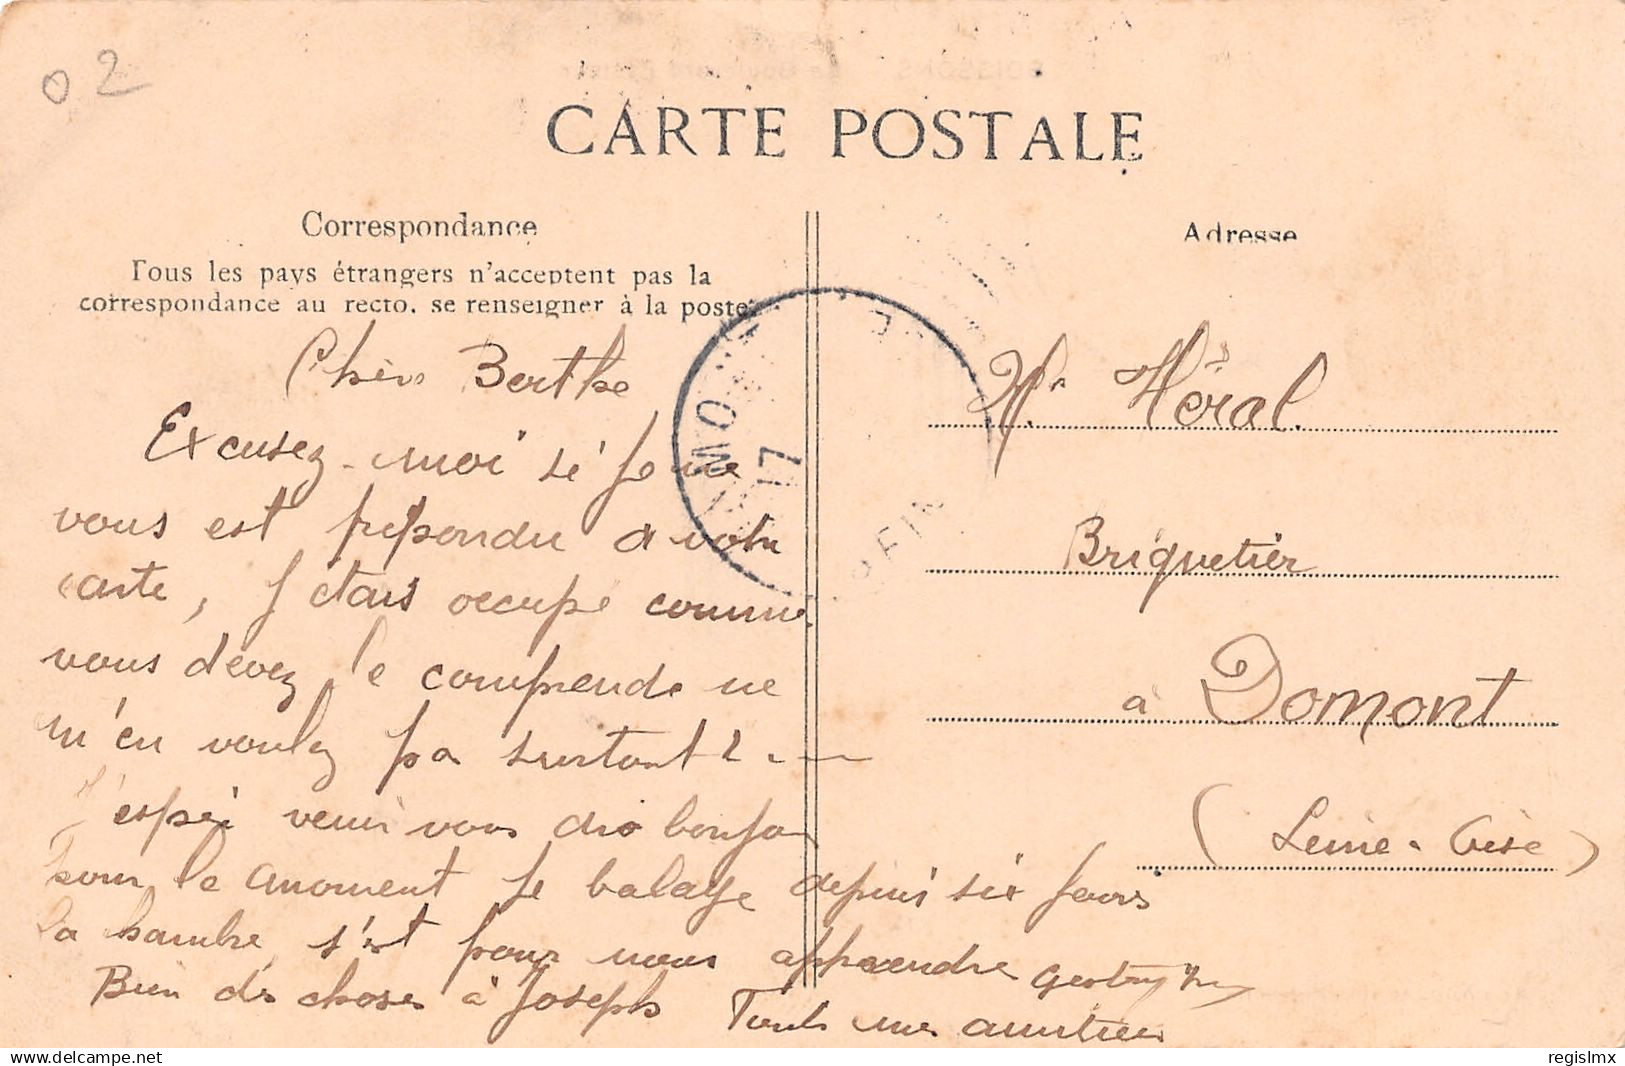 02
CARTE POSTALE
Correspondance
Tous les pays étrangers n'acceptent pas la
correspondance au recto, se renseigner à la poste.
Chère Berthe
Excusez-moi si je ne
vous est pas répondu a votre
carte, J'étais occupé comme
vous devez le comprendre ne
m'en voulez pa surtout
J'espèr venir vous dire bonjour
Pour le moment je balaye depuis six jours
la chambre, s'est pour nous apprendre
Bien des choses à Joseph Touts mes amitiées
Adresse
Mr Héral.
Briquetier
à Domont
(Seine-Oise)
17
regislmx